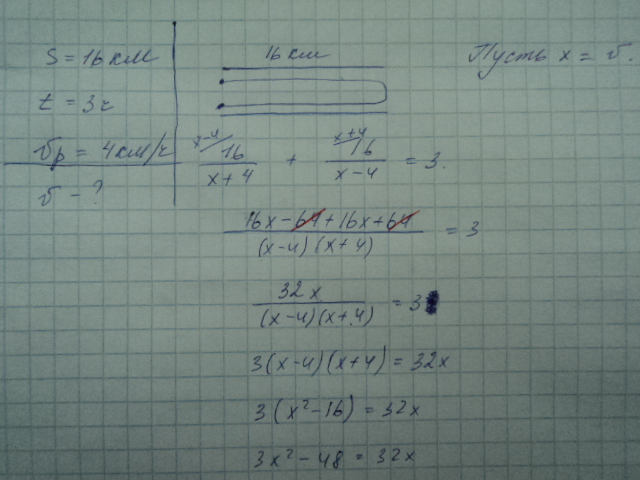 S = 16 км
t = 3ч
υр = 4км/ч
υ - ?
16 км
Пусть x = υ.
x-4/ 16 / x+4 + x+4/ 16 / x-4 = 3.
16x-64+16x+64 / (x-4)(x+4) = 3
32x / (x-4)(x+4) = 3
3(x-4)(x+4) = 32x
3(x²-16) = 32x
3x²-48 = 32x